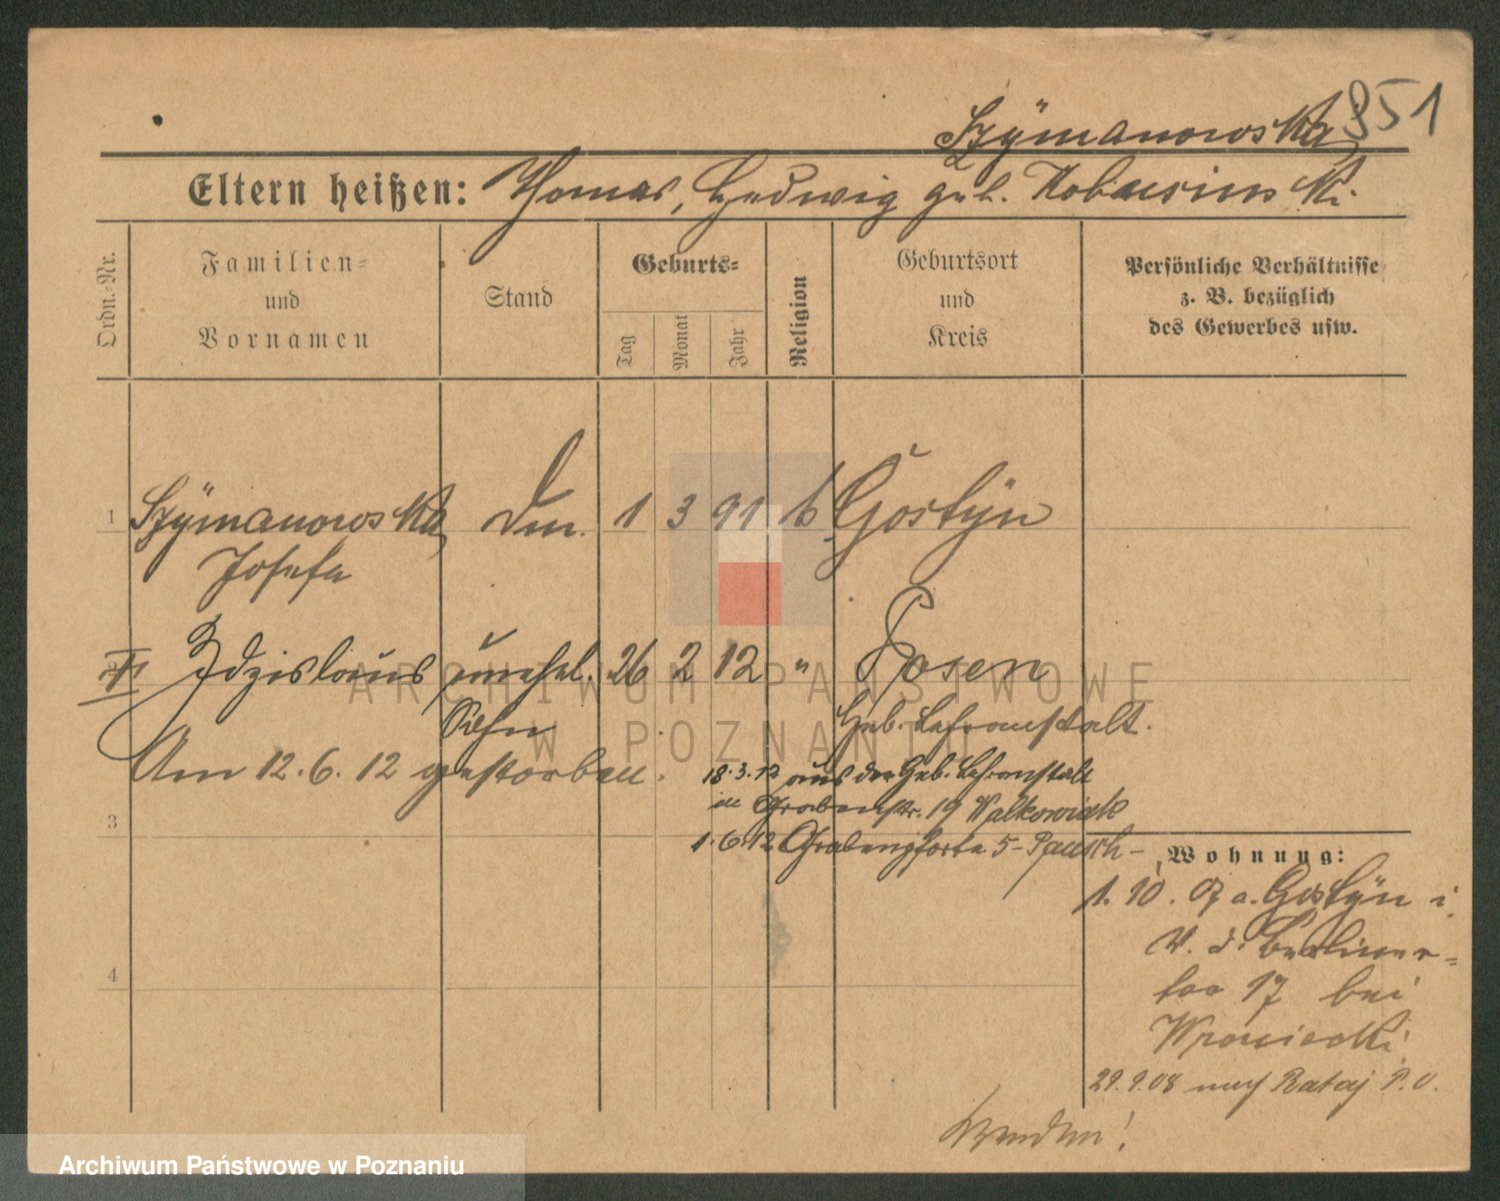 351
Szÿmanowska
Eltern heißen: Thomas, Hedwig geb. Kobusinski
Ordn.-Nr.
Familien-
und
Vornamen
Stand
Geburts-
Tag
Monat
Jahr
Religion
Geburtsort
und
Kreis
Persönliche Verhältnisse
z. B. bezüglich
des Gewerbes usw.
1 Szÿmanowska 1 3 91 k Gostÿn
Josefa
II Zdzislaus unehel. 26 2 12 " Posen
Sohn Heb. Lehranstalt.
Am 12. 6. 12 gestorben.
18. 3. 12 aus der Heb. Lehranstalt
in Grabenstr. 19 Walkowiak
3
1. 6. 12 Grabenpforte 5 - Pausch -
Wohnung:
1. 10. 07 a. Gostÿn i.
W. d. Berliner-
tor 17 bei
4
29. 9. 08 nach Rataj P. O.
Wenden!
ARCHIWUM PAŃSTWOWE
W POZNANIU
Archiwum Państwowe w Poznaniu